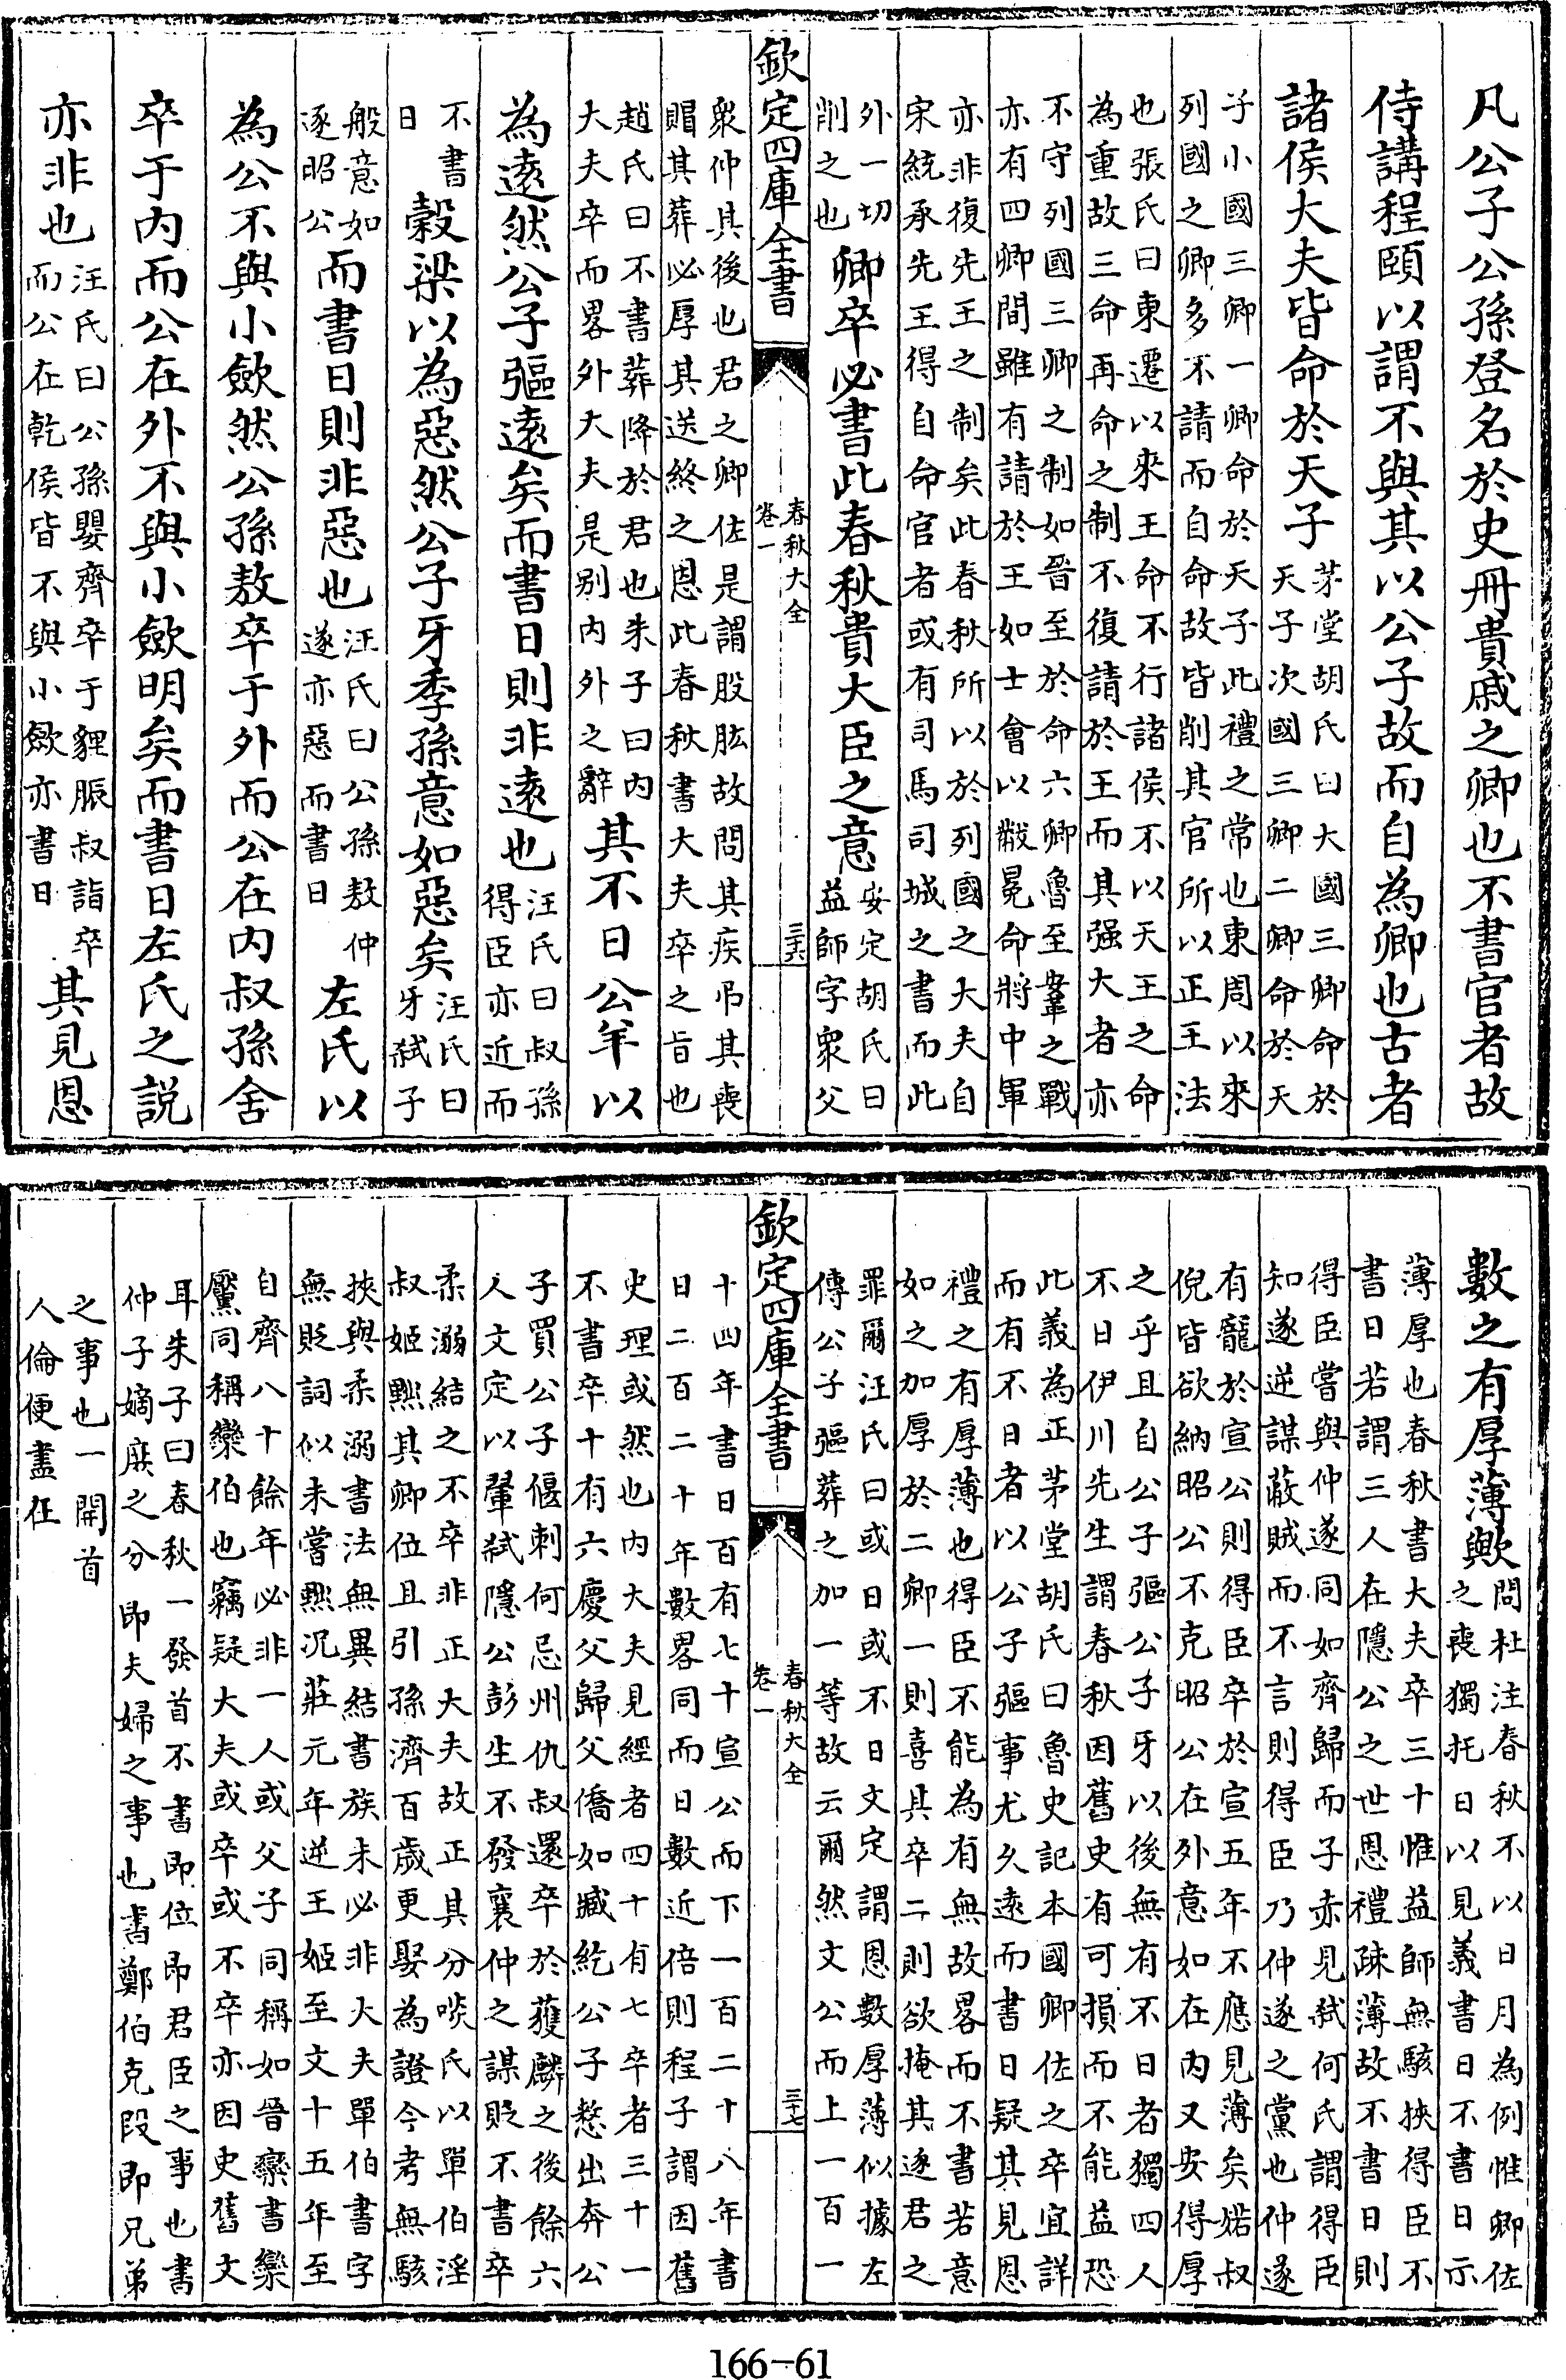 凡公子公孫登名於史冊貴戚之卿也不書官者故
侍講程頤以謂不與其以公子故而自為卿也古者
諸侯大夫皆命於天子
茅堂胡氏曰大國三卿命於
天子次國三卿二卿命於天
子小國三卿一卿命於天子此禮之常也東周以來
列國之卿多不請而自命故皆削其官所以正王法
也張氏曰東遷以來王命不行諸侯不以天王之命
為重故三命再命之制不復請於王而其强大者亦
不守列國三卿之制如晉至於命六卿魯至鞌之戰
亦有四卿間雖有請於王如士會以黻冕命將中軍
亦非復先王之制矣此春秋所以於列國之大夫自
宋統承先王得自命官者或有司馬司城之書而此
外一切
削之也
卿卒必書此春秋貴大臣之意
安定胡氏曰
益師字衆父
欽定四庫全書
春秋大全
卷一
三十六
衆仲其後也君之卿佐是謂股肱故問其疾弔其喪
賵其葬必厚其送終之恩此春秋書大夫卒之旨也
趙氏曰不書葬降於君也朱子曰内
大夫卒而畧外大夫是别内外之辭
其不日公羊以
為遠然公子彄遠矣而書日則非遠也
汪氏曰叔孫
得臣亦近而
不書
日
穀梁以為惡然公子牙季孫意如惡矣
汪氏曰
牙弑子
般意如
逐昭公
而書日則非惡也
汪氏曰公孫敖仲
遂亦惡而書日
左氏以
為公不與小歛然公孫敖卒于外而公在内叔孫舍
卒于内而公在外不與小歛明矣而書日左氏之説
亦非也
汪氏曰公孫嬰齊卒于貍脤叔詣卒
而公在乾侯皆不與小歛亦書日
其見恩
數之有厚薄歟
問杜注春秋不以日月為例惟卿佐
之喪獨托日以見義書日不書日示
薄厚也春秋書大夫卒三十惟益師無駭挾得臣不
書日若謂三人在隱公之世恩禮疎薄故不書日則
得臣嘗與仲遂同如齊歸而子赤見弑何氏謂得臣
知遂逆謀蔽賊而不言則得臣乃仲遂之黨也仲遂
有寵於宣公則得臣卒於宣五年不應見薄矣婼叔
倪皆欲納昭公不克昭公在外意如在内又安得厚
之乎且自公子彄公子牙以後無有不日者獨四人
不日伊川先生謂春秋因舊史有可損而不能益恐
此義為正茅堂胡氏曰魯史記本國卿佐之卒宜詳
而有不日者以公子彄事尤久遠而書日疑其見恩
禮之有厚薄也得臣不能為有無故畧而不書若意
如之加厚於二卿一則喜其卒二則欲掩其逐君之
罪爾汪氏曰或日或不日文定謂恩數厚薄似據左
傳公子彄葬之加一等故云爾然文公而上一百一
欽定四庫全書
春秋大全
卷一
三十七
十四年書日百有七十宣公而下一百二十八年書
日二百二十年數畧同而日數近倍則程子謂因舊
史理或然也内大夫見經者四十有七卒者三十一
不書卒十有六慶父歸父僑如臧紇公子憗出奔公
子買公子偃刺何忌州仇叔還卒於獲麟之後餘六
人文定以翬弑隱公彭生不發襄仲之謀貶不書卒
柔溺結之不卒非正大夫故正其分啖氏以單伯淫
叔姬黜其卿位且引孫濟百歲更娶為證今考無駭
挾與柔溺書法無異結書族未必非大夫單伯書字
無貶詞似未嘗黜況莊元年逆王姬至文十五年至
自齊八十餘年必非一人或父子同稱如晉欒書欒
黶同稱欒伯也竊疑大夫或卒或不卒亦因史舊文
耳朱子曰春秋一發首不書即位即君臣之事也書
仲子嫡庶之分即夫婦之事也書鄭伯克段即兄弟
之事也一開首
人倫便盡在
166-61